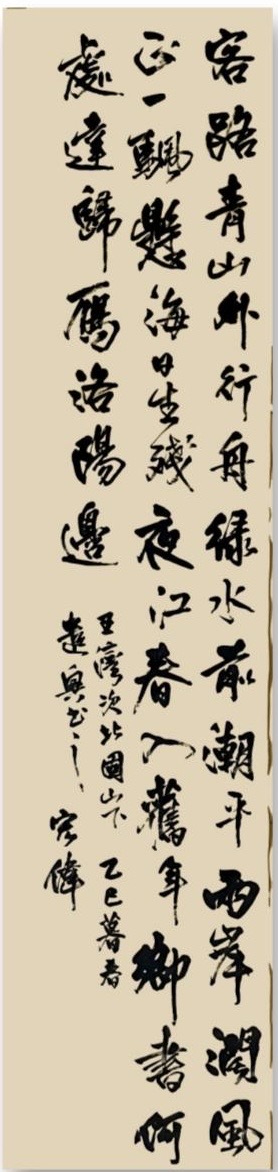 客路青山外行舟绿水前潮平两岸阔风
正一帆懸海日生残夜江春入舊年鄉書何
處達歸雁洛陽邊
王灣次北固山下 乙巳暮春
遣興書之 宏偉